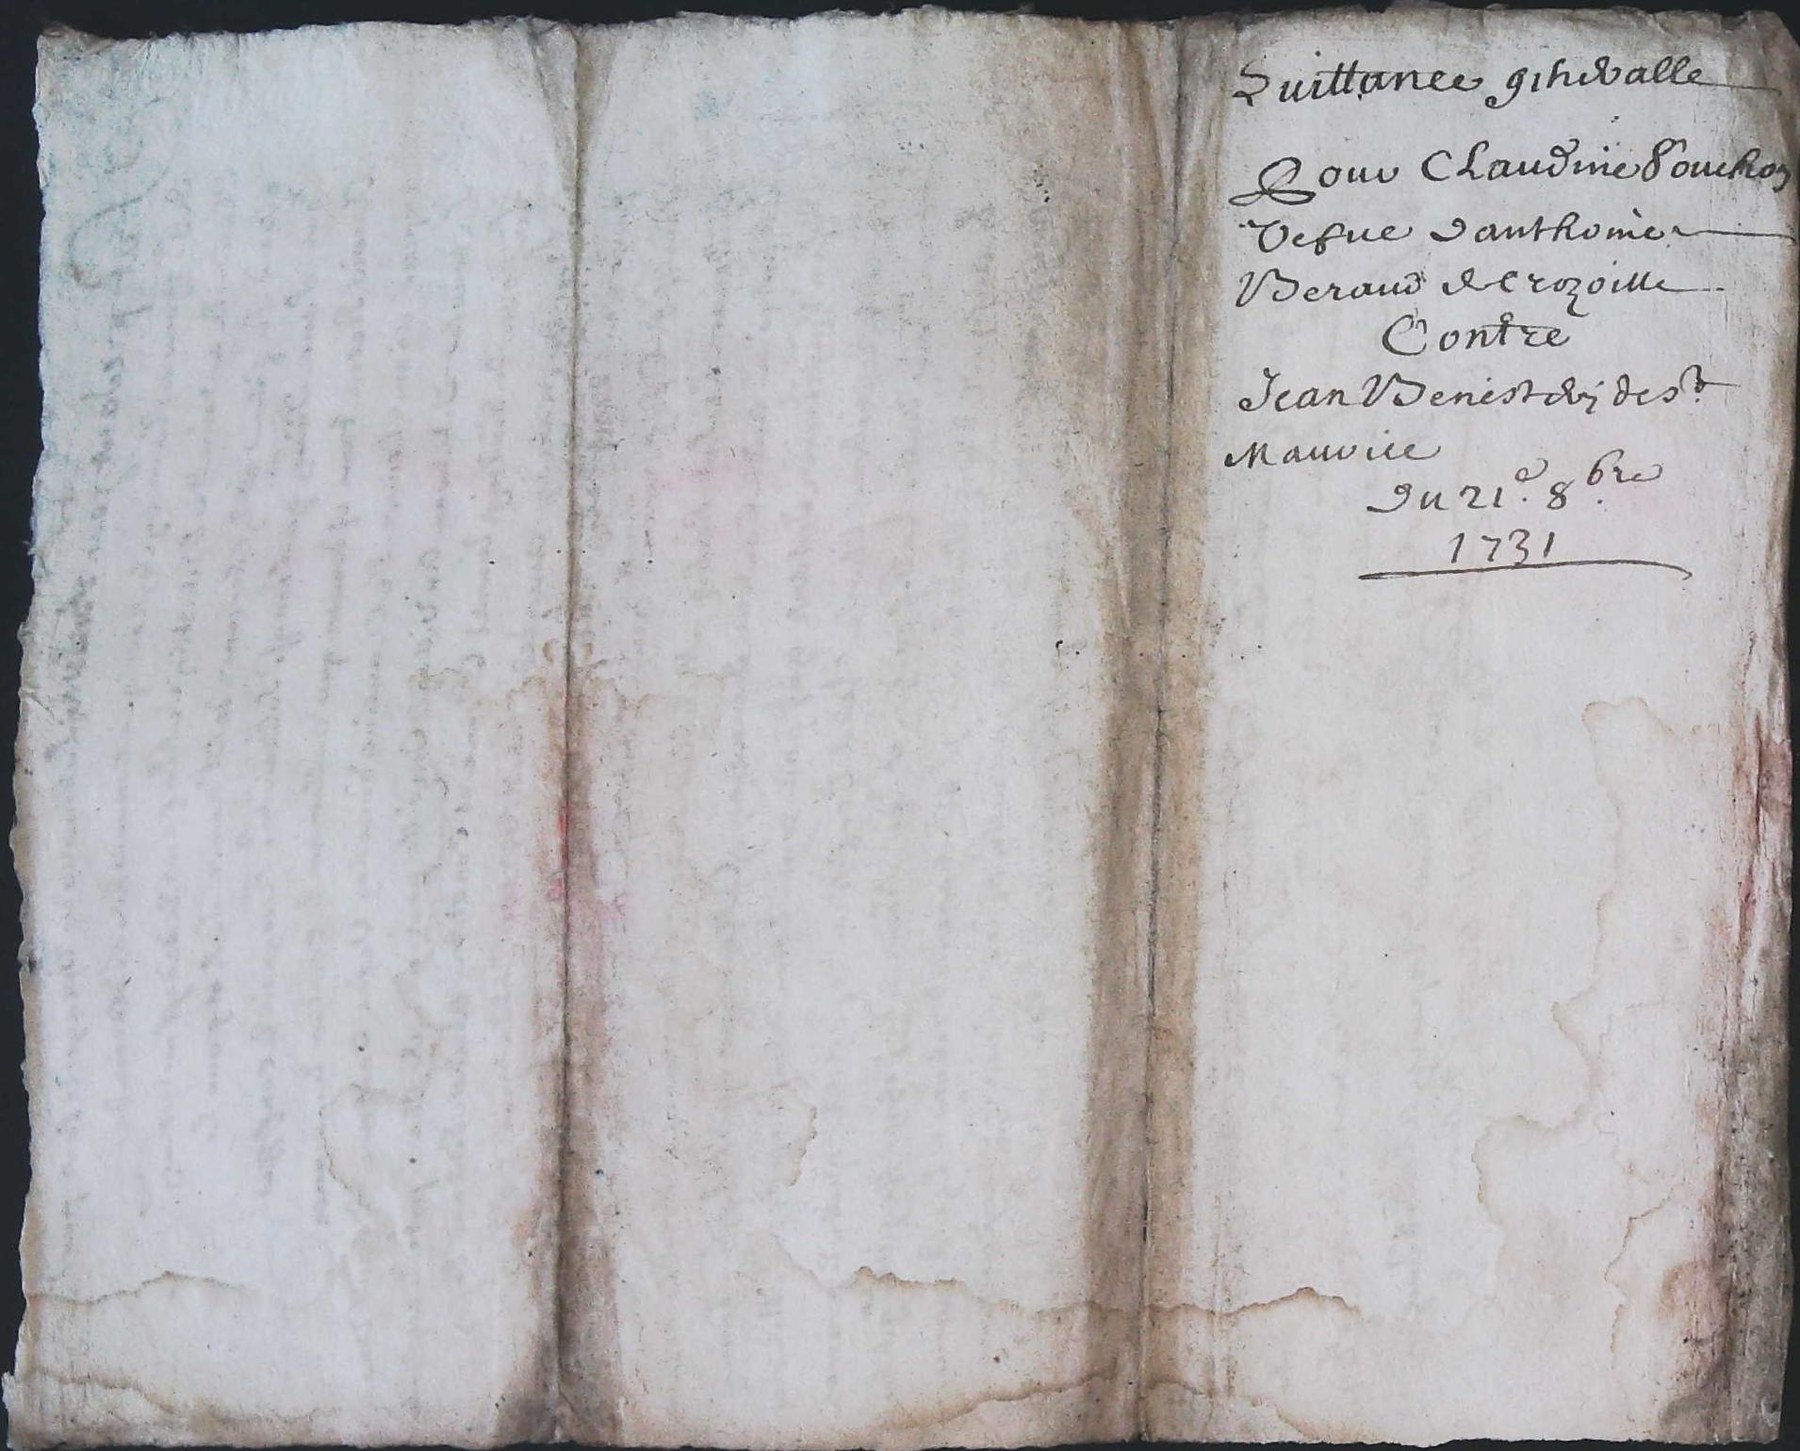 Quittance generalle
Pour Claudine Souchon
Vefue danthoine
Beraud de crozoille
Contre
Jean Benist de; de st
Maurice
du 21e. 8bre
1731